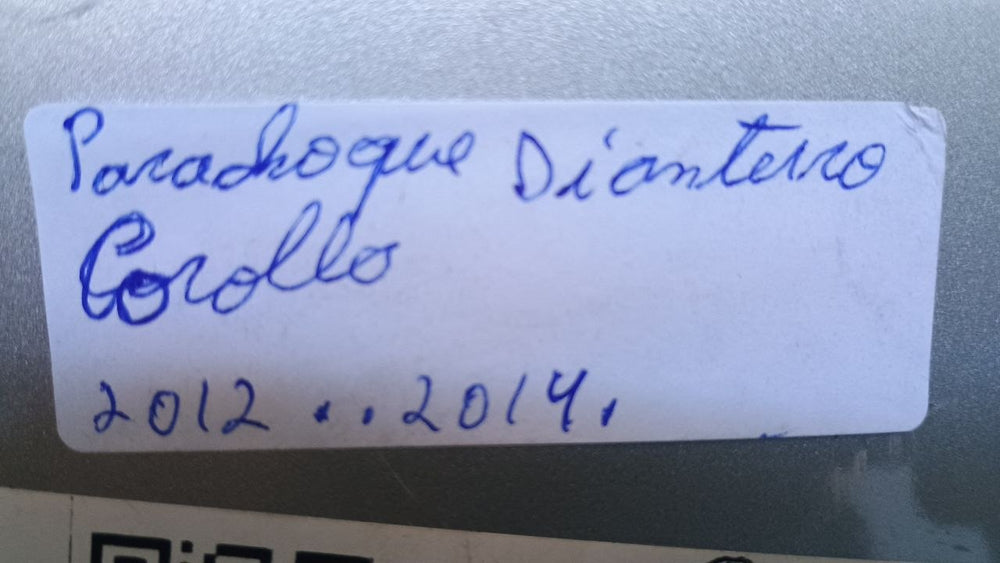 Parachoque Dianteiro
Corolla
2012..2014.